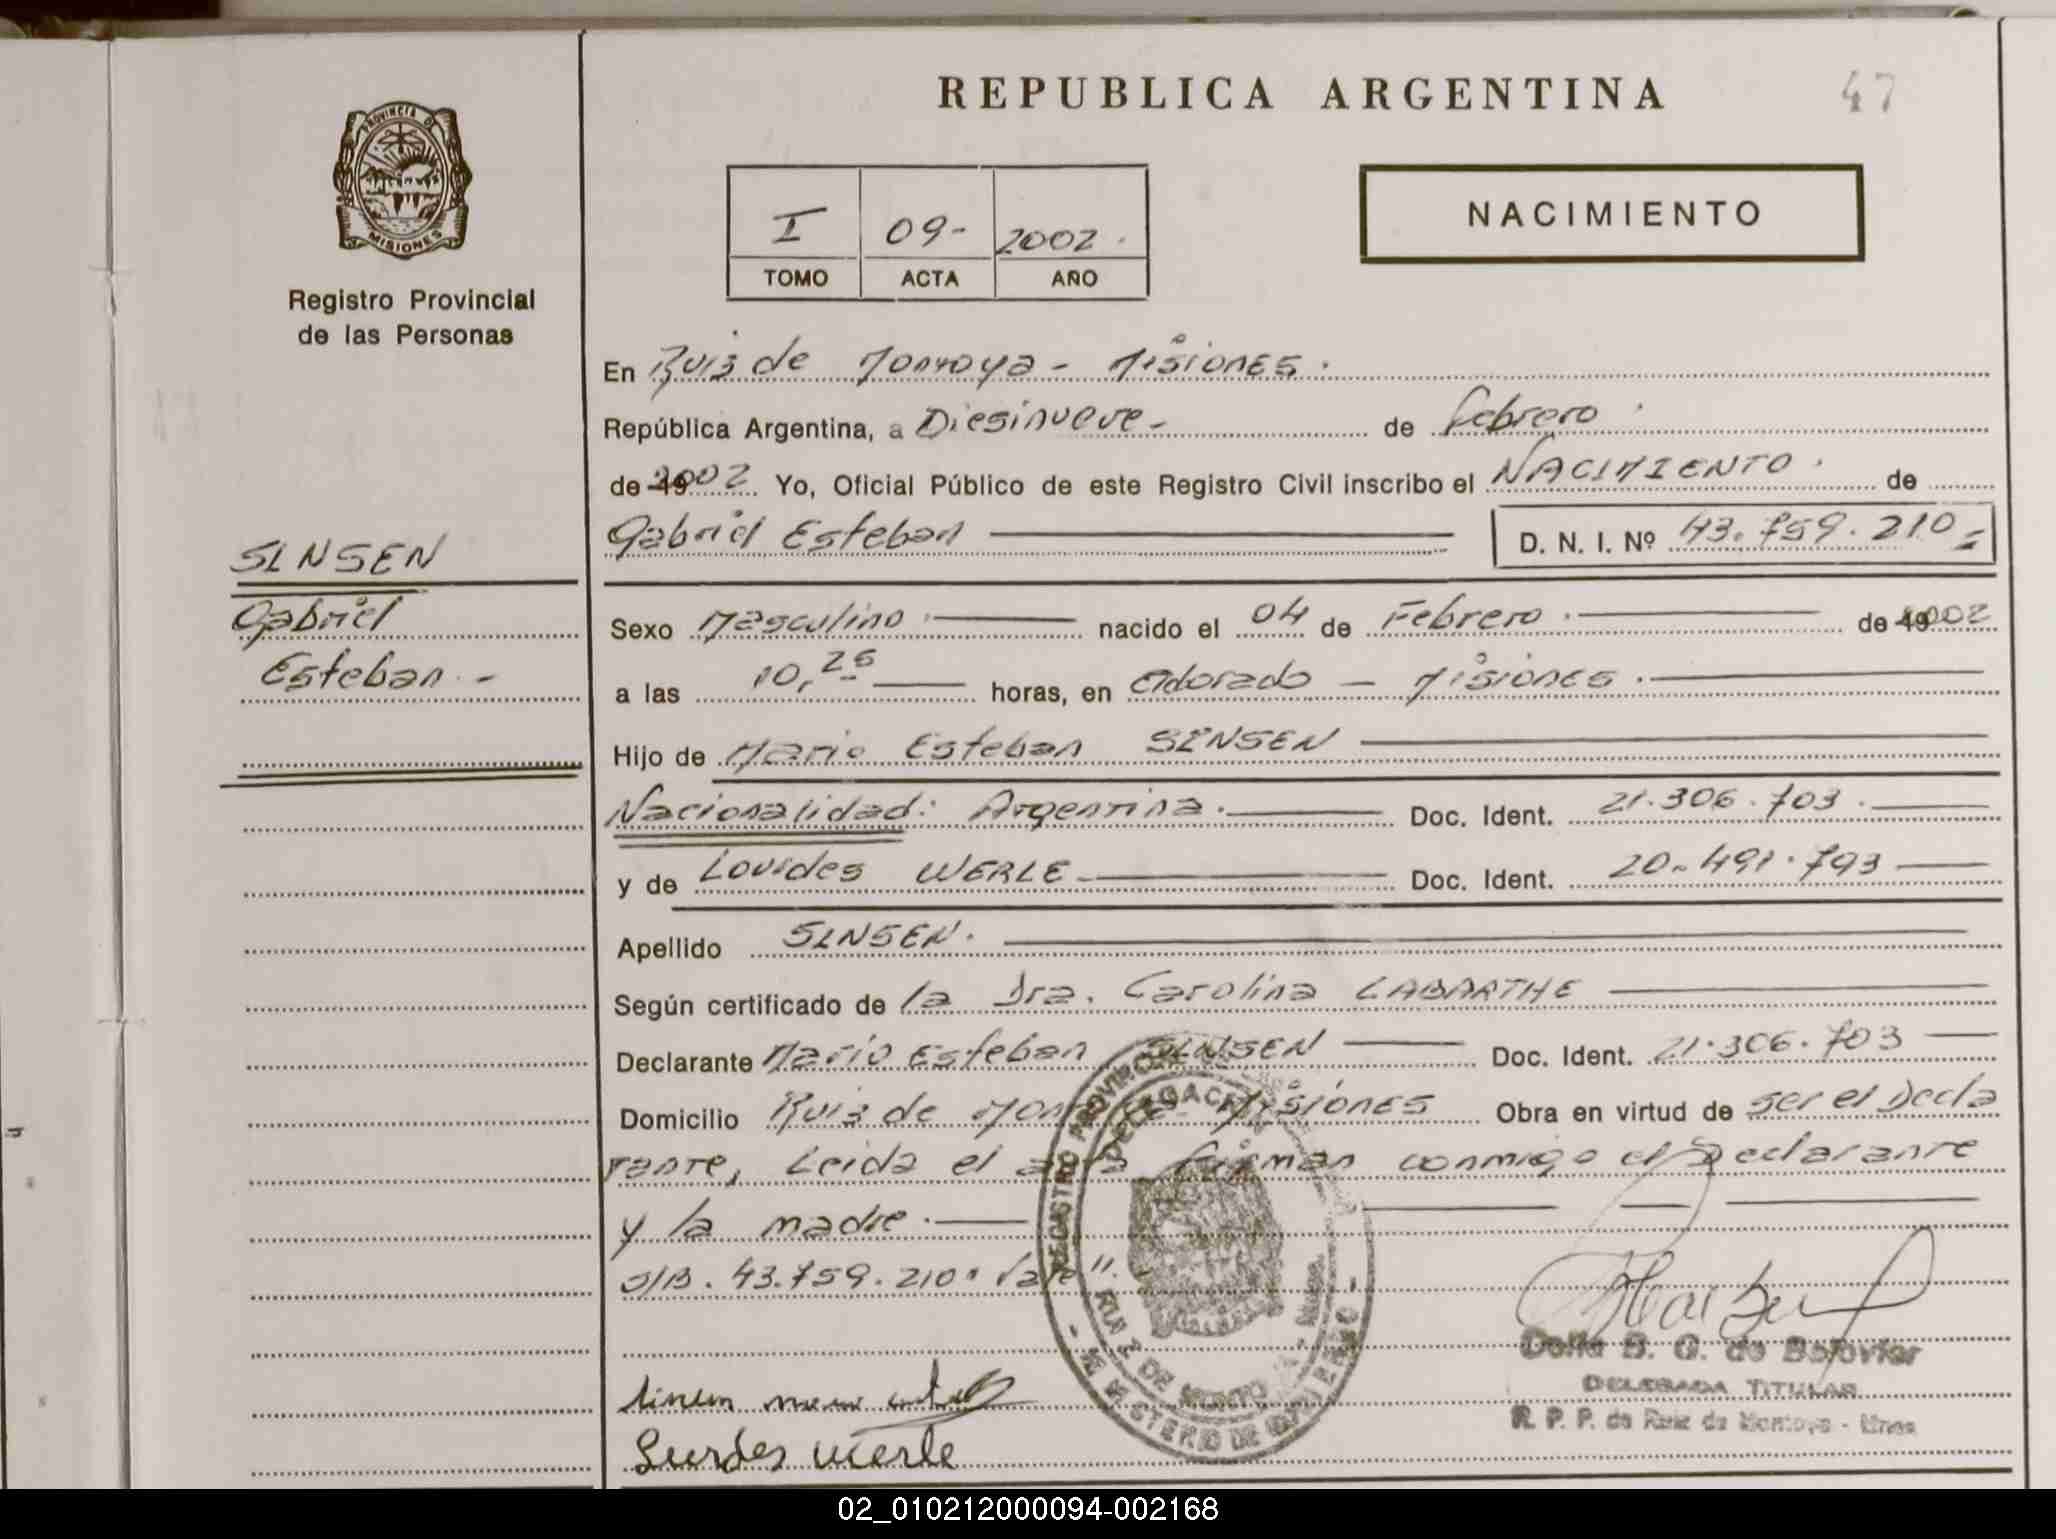 REPUBLICA ARGENTINA
47
PROVINCIA DE
MISIONES
Registro Provincial
de las Personas
I 09- 2002.
TOMO ACTA AÑO
NACIMIENTO
En Ruiz de Montoya - Misiones.
República Argentina, a Diesinueve - de febrero.
de 19 2002 Yo, Oficial Público de este Registro Civil inscribo el NACIMIENTO. de
Gabriel Esteban D. N. I. Nº 43.759.210=
SINSEN
Gabriel
Esteban -
Sexo Masculino. nacido el 04 de Febrero. de 19 2002
a las 10,25 horas, en Eldorado - Misiones.
Hijo de Mario Esteban SINSEN
Nacionalidad: Argentina. Doc. Ident. 21.306.703.
y de Lourdes WERLE Doc. Ident. 20.491.793
Apellido SINSEN.
Según certificado de la Dra. Carolina LABARTHE
Declarante Mario Esteban SINSEN Doc. Ident. 21.306.703
Domicilio Ruiz de Montoya - Misiones Obra en virtud de ser el Decla
rante, Leida el acta firman conmigo el Declarante
y la madre.
S/B. 43.759.210" Vale".
REGISTRO PROVINCIAL
DELEGACION
RUIZ DE MONTOYA - Misiones
- MINISTERIO DE GOBIERNO -
B. G. de
DELEGADA TITULAR
R. P. P. de Ruiz de Montoya - Mnes
Lurdes Werle
02_010212000094-002168